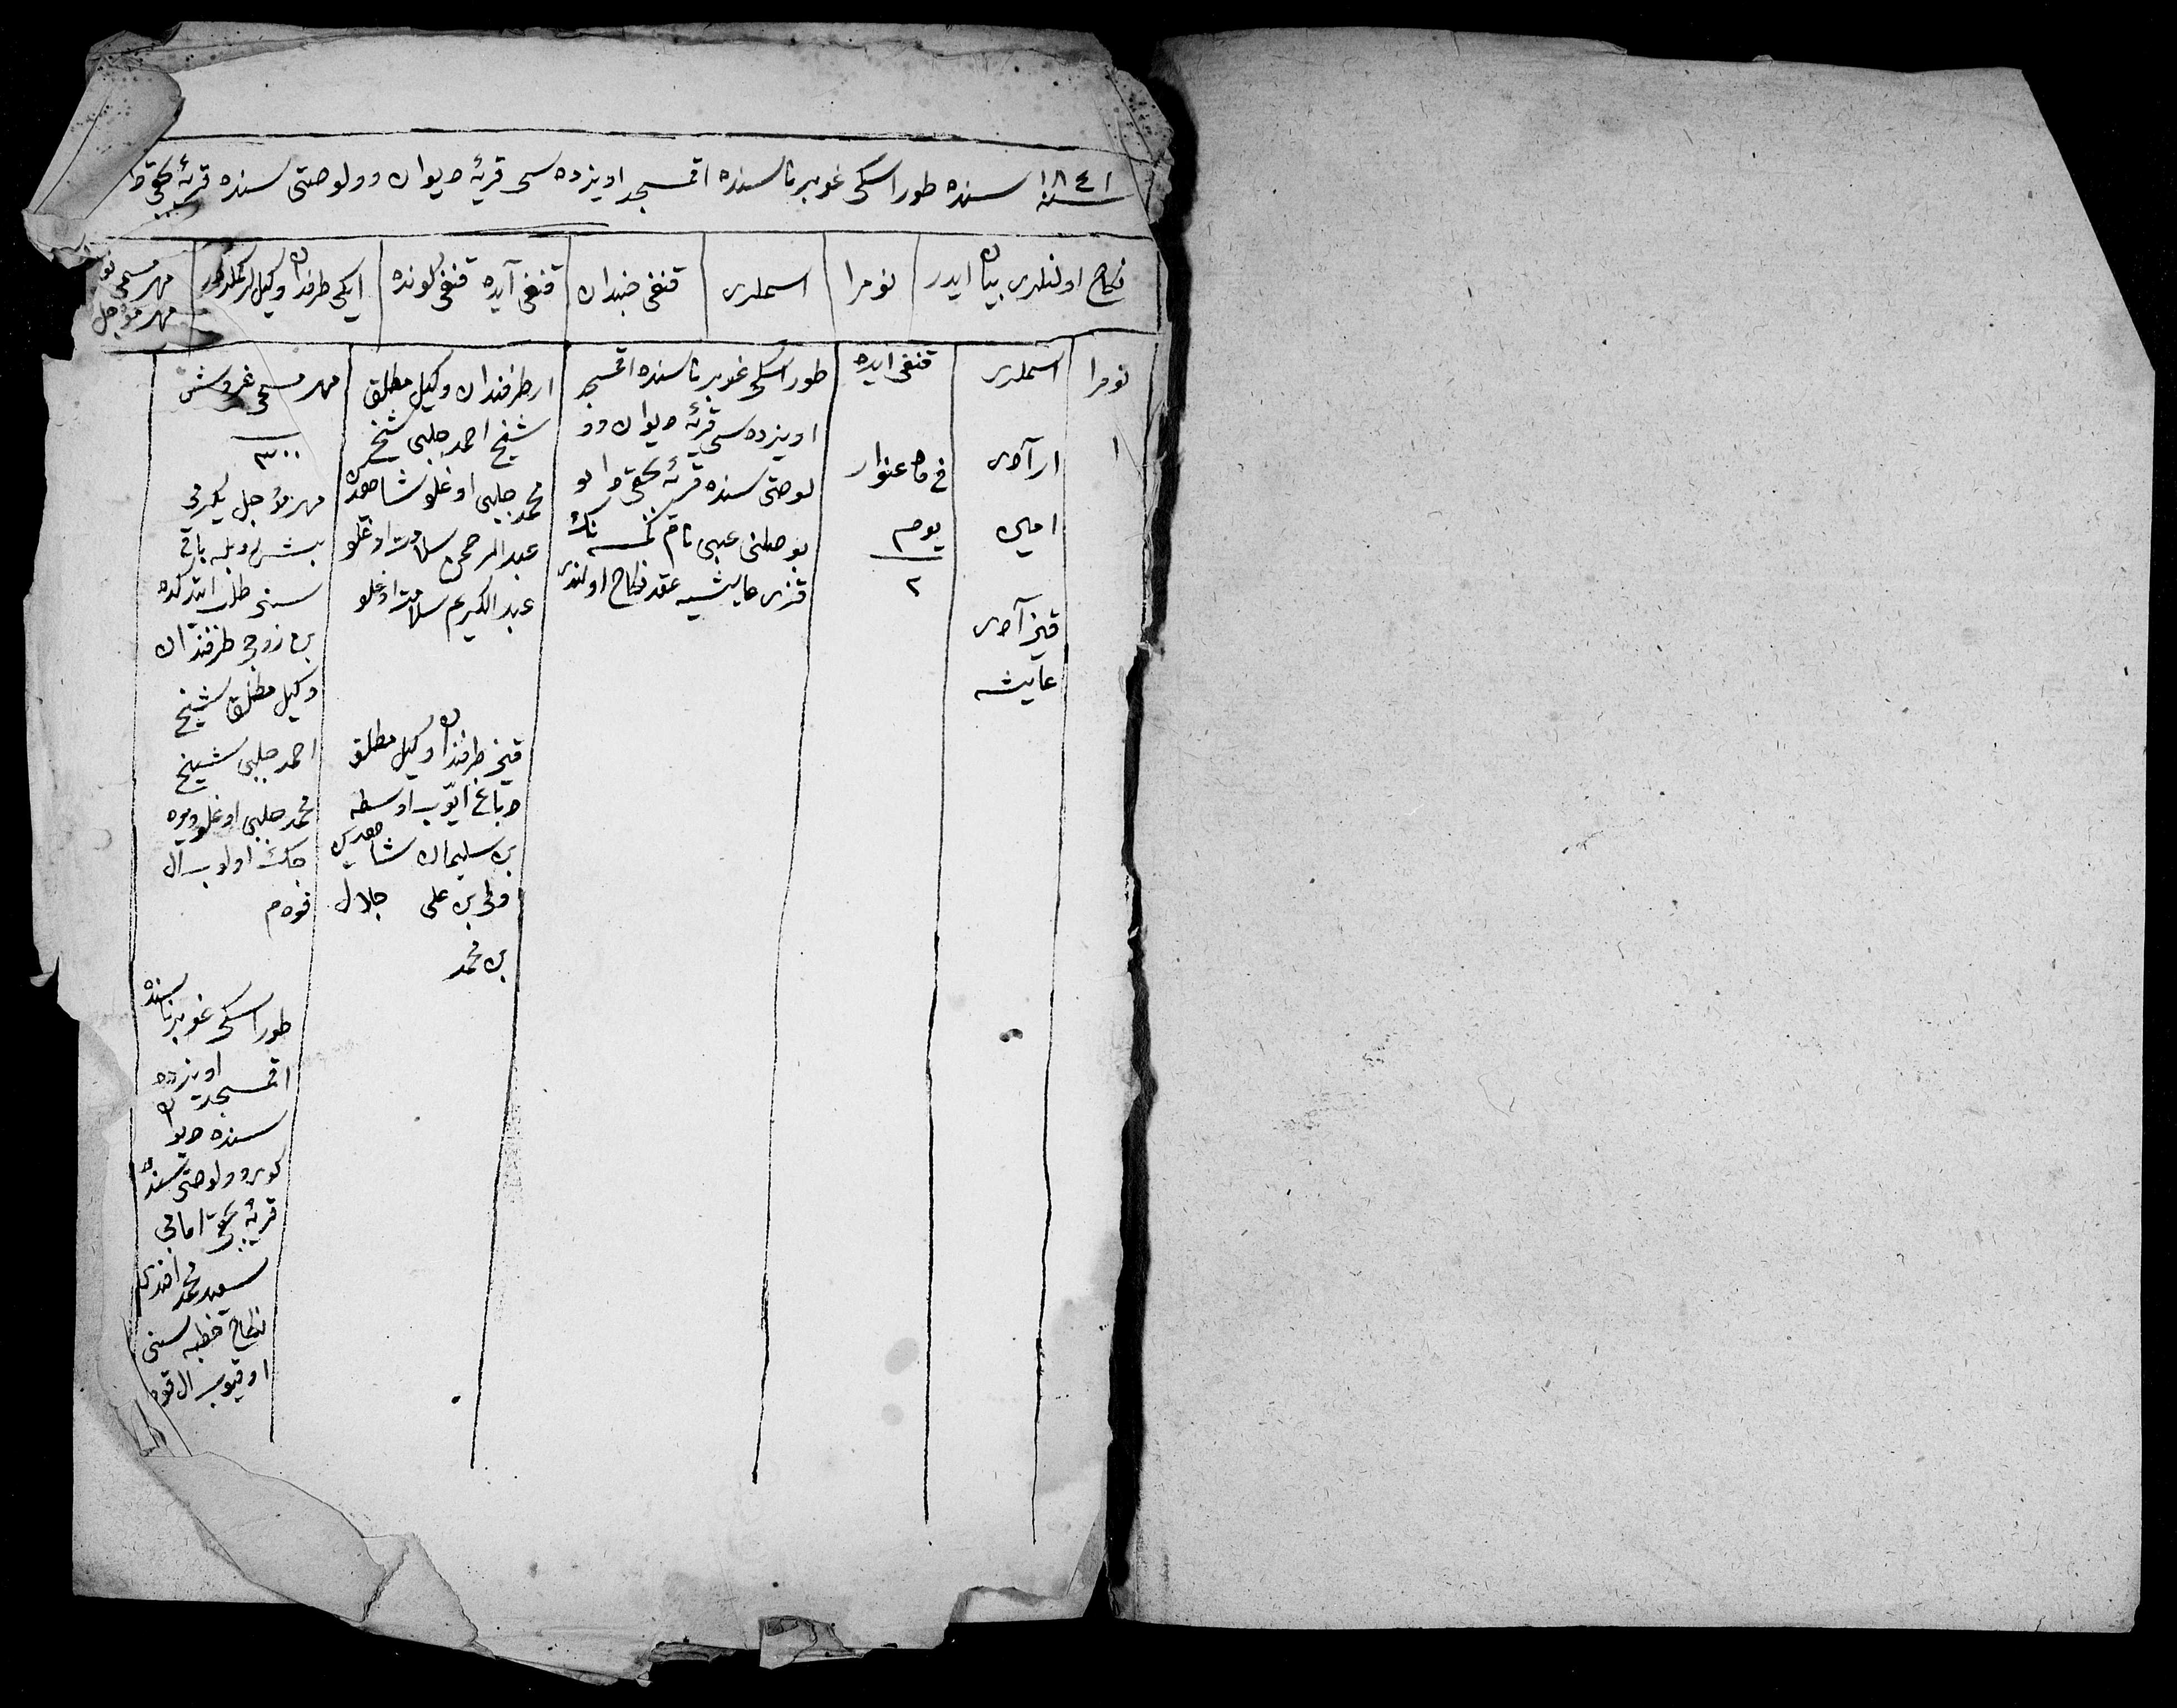 سنه ١٨٤١ سنده طوراسكی غوبرناسنده اقمسجد اویزده سی قریهٔ دیوان وولوصتی سنده قریهٔ
نكاح اولنلری بیان ایدر
نومرا
اسملری
قنغی جنبدان
قنغی آیده قنغی كونده
ایكی طرفدان وكیل لر كملردر
مهر مسمی
مهر مؤجل
نومرا
١
اسملری
ار آدی
امین
قیز آدی
عایشه
قنغی ایده
فی ماه غنوار
یوم
٢
طوراسكی غوبرناسنده اقمسجد
اویزده سی قریهٔ دیوان وو
لوصتی سنده قریهٔ
بوصلنی عبی نام كمسه نك
قزی عایشیه عقد نكاح اولندی
ار طرفندان وكیل مطلق
شیخ احمد چلبی شیخ
محمد چلبی اوغلو شاهدین
عبد الرحمن سلامت اوغلو
عبد الكریم سلامت اوغلو
قیز طرفندان وكیل مطلق
دباغ ایّوب اوسطه
بن سلیمان شاهدین
ولی بن علی جلال
بن محمد
مهر مسمی غروش
٣٠٠
مهر مؤجل یكرمی
بش روبله باقی
سنی طلب ایتدكده
بن زوجی طرفندان
وكیل مطلق شیخ
احمد چلبی شیخ
محمد چلبی اوغلو ویره
جك اولوب ال
قودم
طوراسكی غوبرناسنده
اقمسجد اویزده
سنده دیوان
كوی وولوصتی سنده
قریهٔ امامی
سعید محمد افندی
نكاح خطبه سنی
اوقیوب ال قود